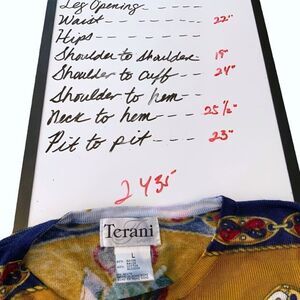 Leg Opening - - - -
Waist - - - - - - - 22"
Hips - - - - - -
Shoulder to Shoulder - - 19"
Shoulder to Cuff - - - 24"
Shoulder to hem - - -
Neck to hem - - - - 25 1/2"
Pit to pit - - - - 23"
2435
Terani
L